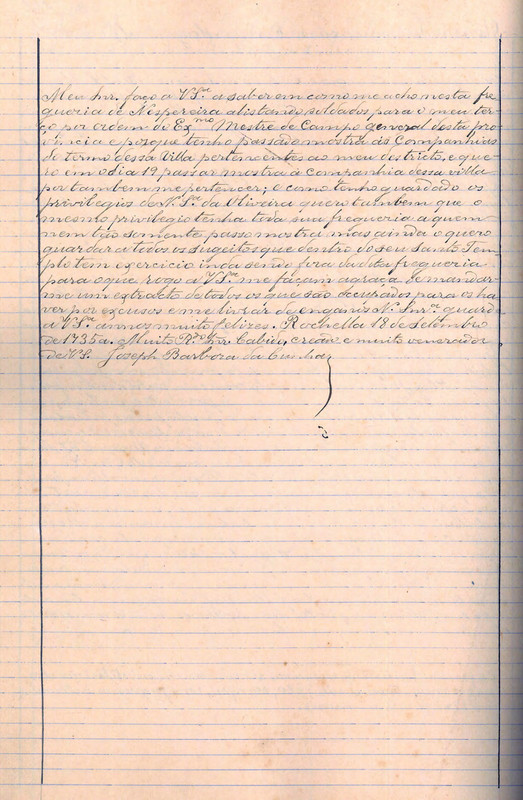 Meu Snr. faço a VSrª a saber em como me acho nesta fre
gueria de Nespereira alistando soldados para o meu ter
ço por ordem do Exmo Mestre de Campo general desta pro
vincia e porque tenho passado mostra ás Companhias
do termo dessa Villa pertencentes ao meu destricto, e que
ro em o dia 19 passar mostra á Companhia dessa villa
por tambem me pertencer; e como tenho guardado os
privilegios de N. Srª da Oliveira quero tambem que o
mesmo privilegio tenha toda sua fregueria a quem
nem tão somente passo mostra, mas ainda o quero
guardar a todos os sugeitos que dentro do seu Santo Tem
plo tem exercicio inda sendo fora da dita fregueria
para o que rogo a VSrª me façam a graça de mandar
me um extracto de todos os que são para os ha
ver por excusos e me livrar de enganos N. Snrª guarde
a VSrª annos muito felizes. Rochella 18 de Setembro
de 1735 a. Muito Rdo Snr. Cabido, criado e muito venerador
de VS. Joseph Barboza da Cunha